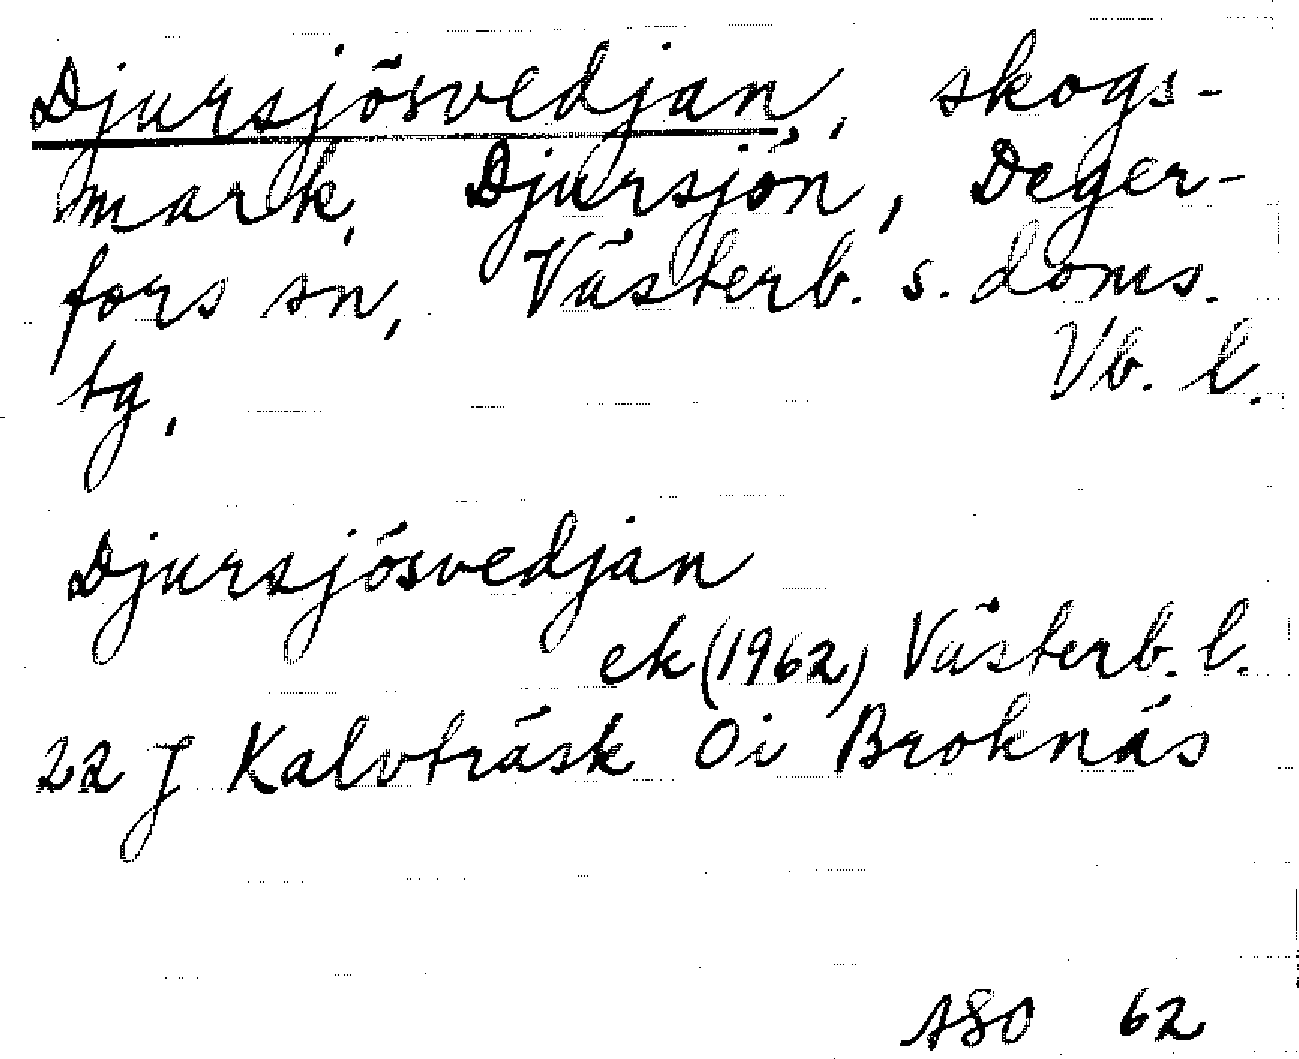 Djursjösvedjan, skogs-
mark, Djursjön, Deger-
fors sn, Västerb. s. doms.
tg. Vb. l.
Djursjösvedjan
ek (1962) Västerb. l.
22 J Kalvträsk Oi Broknäs
ASO 62